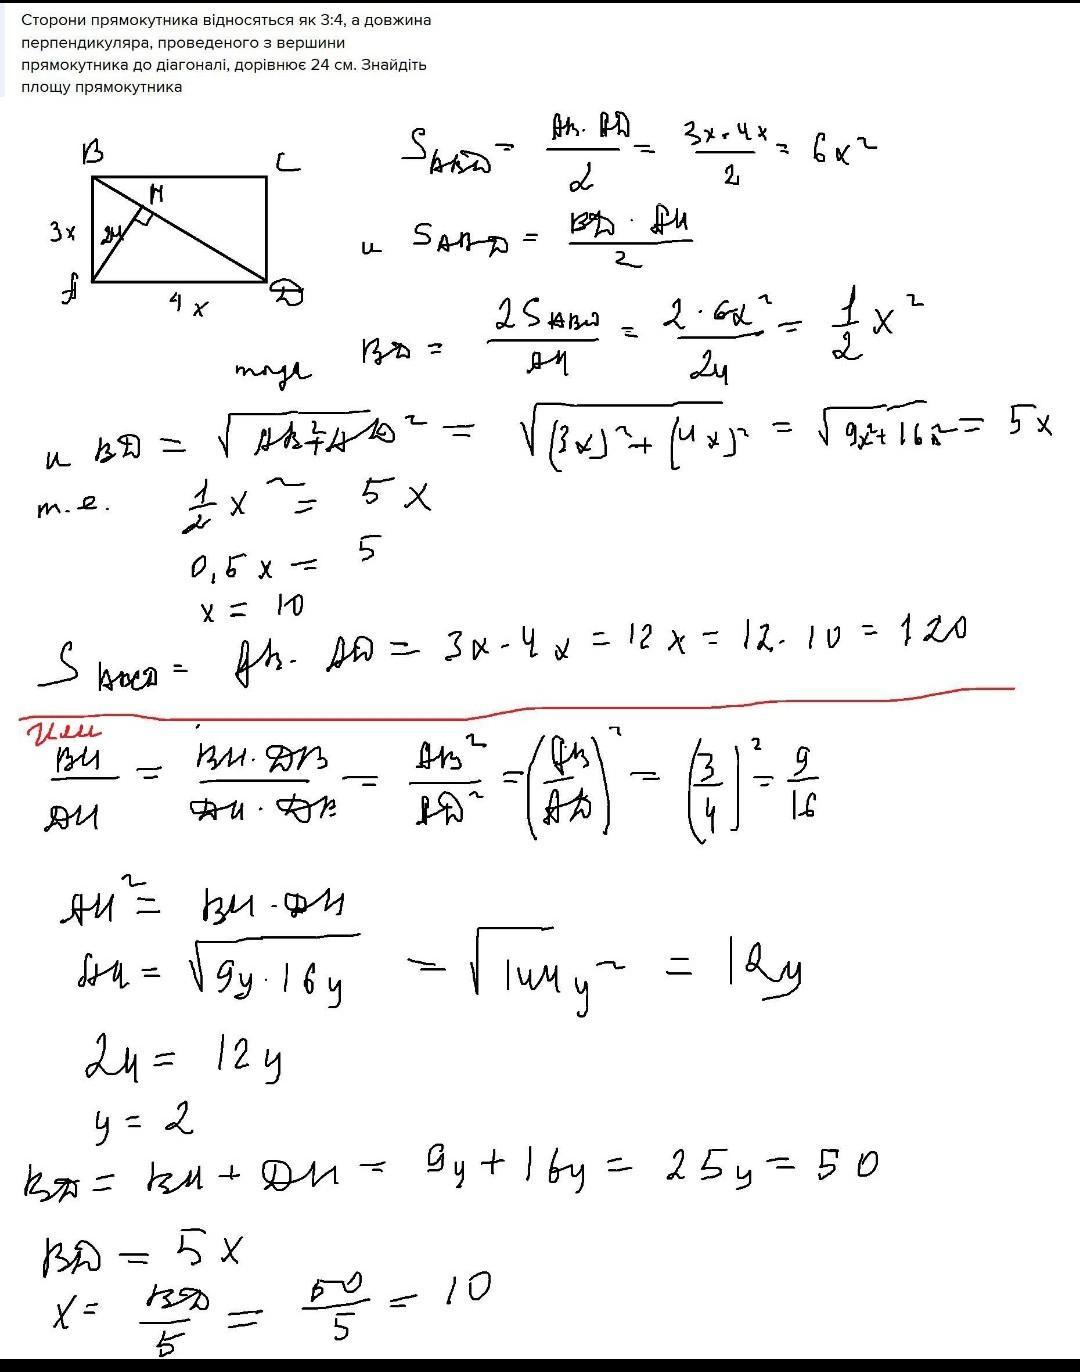 Сторони прямокутника відносяться як 3:4, а довжина
перпендикуляра, проведеного з вершини
прямокутника до діагоналі, дорівнює 24 см. Знайдіть
площу прямокутника
B
C
H
3x
24
A
4x
D
S ABD = AB · AD / 2 = 3x · 4x / 2 = 6x²
и S ABD = BD · AH / 2
тогда BD = 2S ABD / AH = 2 · 6x² / 24 = 1/2 x²
и BD = √(AB² + AD²) = √((3x)² + (4x)²) = √(9x² + 16x²) = 5x
т.е. 1/2 x² = 5x
0,5x = 5
x = 10
S ABCD = AB · AD = 3x · 4x = 12x = 12 · 10 = 120
Или
BH / DH = BH · DB / DH · DB = AB² / AD² = (AB / AD)² = (3/4)² = 9/16
AH² = BH · DH
AH = √(9y · 16y) = √(144y²) = 12y
24 = 12y
y = 2
BD = BH + DH = 9y + 16y = 25y = 50
BD = 5x
x = BD / 5 = 50 / 5 = 10